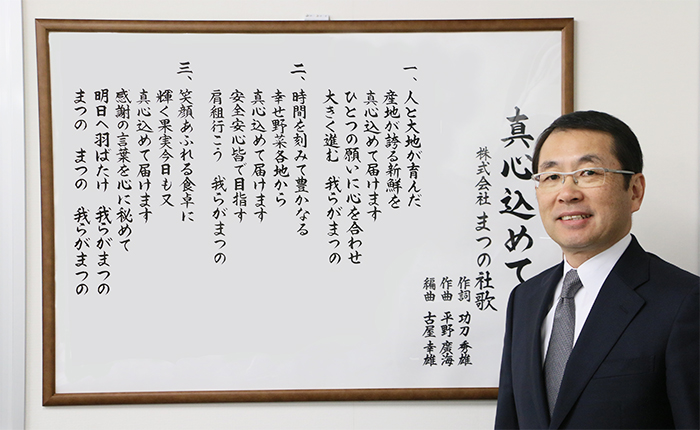 真心込めて
株式会社 まつの社歌
作詞 功刀 秀雄
作曲 平野 廣海
編曲 古屋 幸雄
一、人と大地が育んだ
産地が誇る新鮮を
真心込めて届けます
ひとつの願いに心を合わせ
大きく進む 我らがまつの
二、時間を刻みて豊かなる
幸せ野菜各地から
真心込めて届けます
安全安心皆で目指す
肩組行こう 我らがまつの
三、笑顔あふれる食卓に
輝く果実今日も又
真心込めて届けます
感謝の言葉を心に秘めて
明日へ羽ばたけ 我らがまつの
まつの まつの 我らがまつの